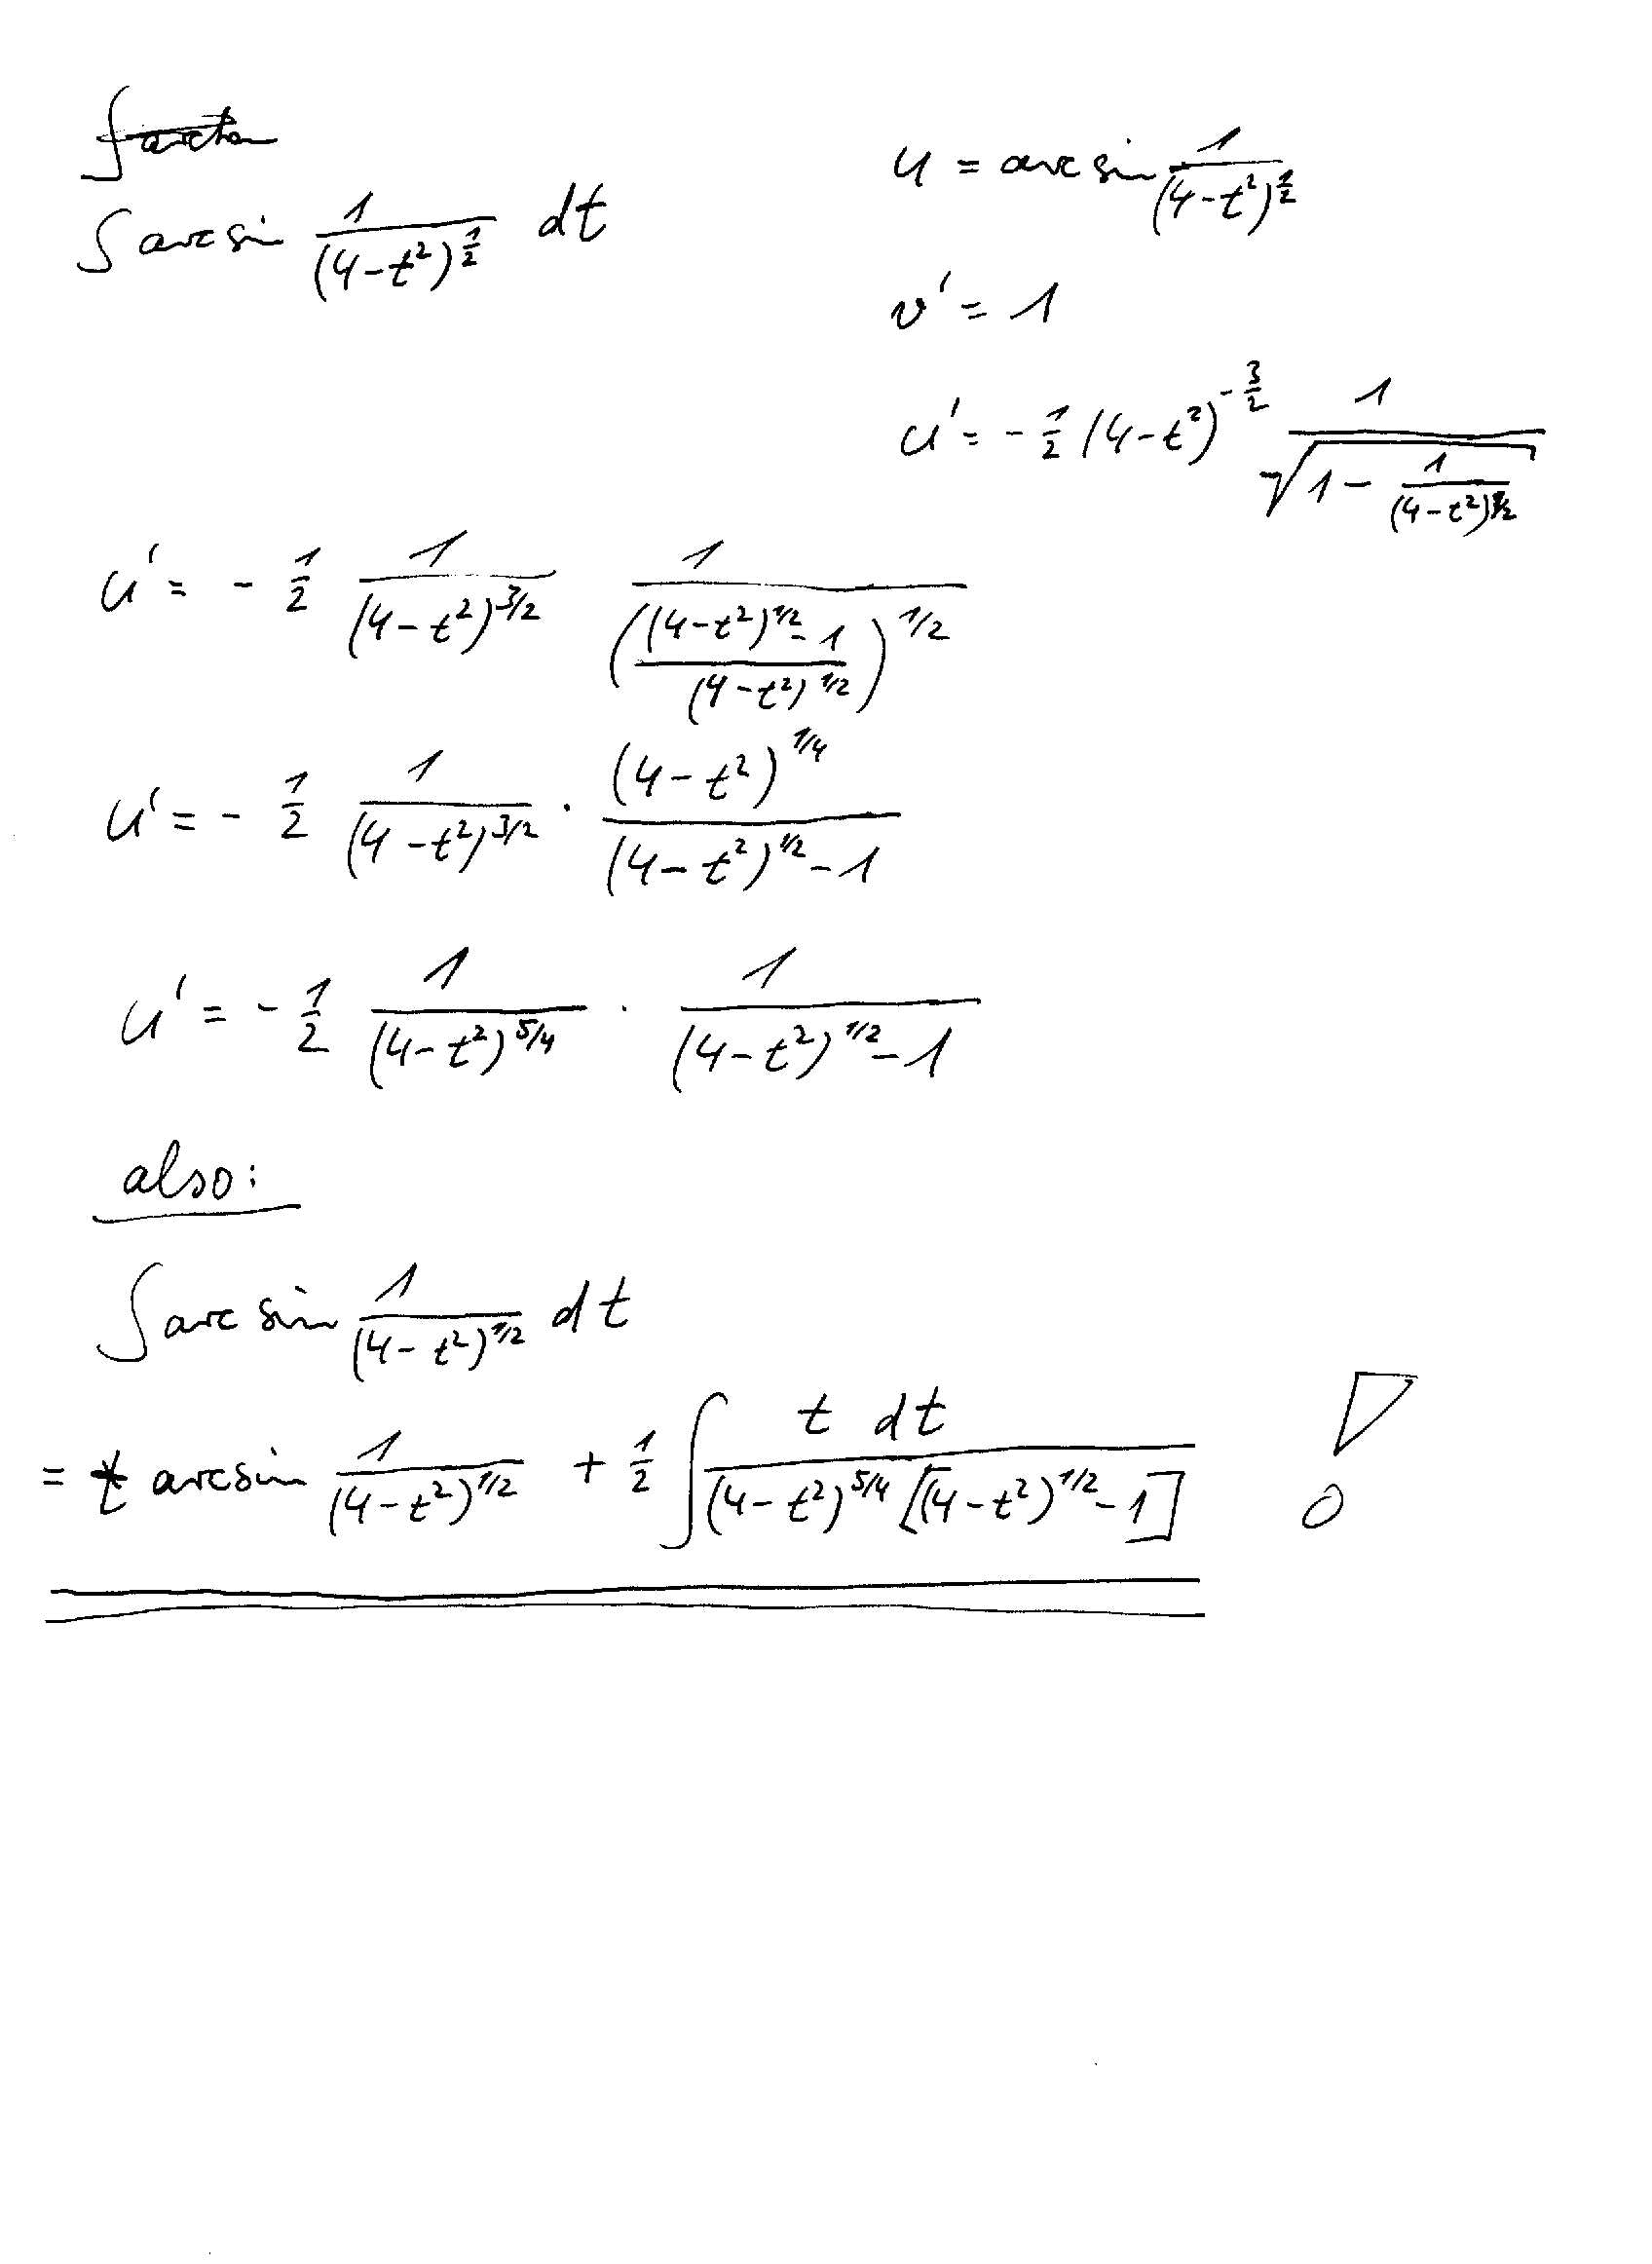 ∫ arctan
∫ arc sin 1/(4-t²)^(1/2) dt
u = arc sin 1/(4-t²)^(1/2)
v' = 1
u' = - 1/2 (4-t²)^(-3/2) 1/√(1 - 1/(4-t²)^(1/2))
u' = - 1/2 1/(4-t²)^(3/2) 1/(((4-t²)^(1/2) - 1)/(4-t²)^(1/2))^(1/2)
u' = - 1/2 1/(4-t²)^(3/2) · (4-t²)^(1/4)/((4-t²)^(1/2) - 1)
u' = - 1/2 1/(4-t²)^(5/4) · 1/((4-t²)^(1/2) - 1)
also:
∫ arc sin 1/(4-t²)^(1/2) dt
= t arcsin 1/(4-t²)^(1/2) + 1/2 ∫ t dt/((4-t²)^(5/4) [(4-t²)^(1/2) - 1]) !